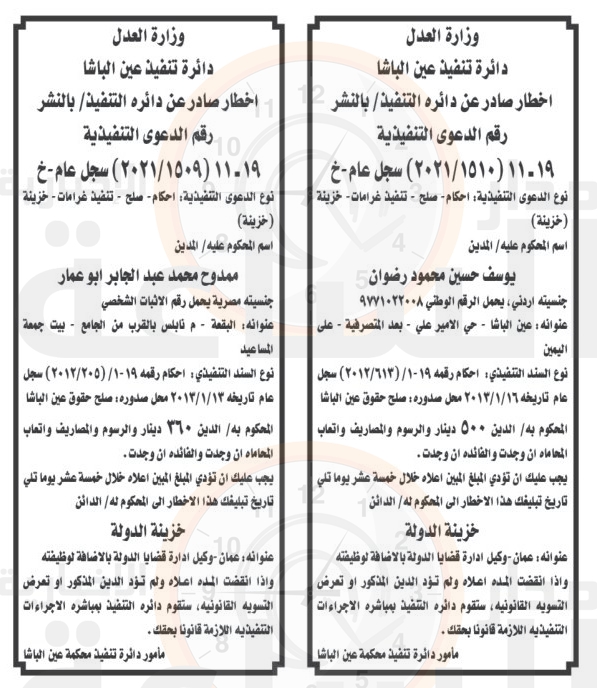 وزارة العدل
دائرة تنفيذ عين الباشا
اخطار صادر عن دائره التنفيذ/ بالنشر
رقم الدعوى التنفيذية
١٩-١١ (٢٠٢١/١٥١٠) سجل عام-خ
نوع الدعوى التنفيذية: احكام- صلح - تنفيذ غرامات- خزينة
(خزينة)
اسم المحكوم عليه/ المدين
يوسف حسين محمود رضوان
جنسيته اردني، يحمل الرقم الوطني ٩٧٧١٠٢٢٠٠٨
عنوانه: عين الباشا - حي الامير علي - بعد المتصرفية - على
اليمين
نوع السند التنفيذي: احكام رقمه ١٩-١/ (٢٠١٢/٦١٣) سجل
عام تاريخه ٢٠١٣/١/١٦ محل صدوره: صلح حقوق عين الباشا
المحكوم به/ الدين ٥٠٠ دينار والرسوم والمصاريف واتعاب
المحاماه ان وجدت والفائده ان وجدت.
يجب عليك ان تؤدي المبلغ المبين اعلاه خلال خمسة عشر يوما تلي
تاريخ تبليغك هذا الاخطار الى المحكوم له/ الدائن
خزينة الدولة
عنوانه: عمان -وكيل ادارة قضايا الدولة بالاضافة لوظيفته
واذا انقضت المده اعلاه ولم تؤد الدين المذكور او تعرض
التسويه القانونيه، ستقوم دائره التنفيذ بمباشره الاجراءات
التنفيذيه اللازمة قانونا بحقك.
مأمور دائرة تنفيذ محكمة عين الباشا
وزارة العدل
دائرة تنفيذ عين الباشا
اخطار صادر عن دائره التنفيذ/ بالنشر
رقم الدعوى التنفيذية
١٩-١١ (٢٠٢١/١٥٠٩) سجل عام-خ
نوع الدعوى التنفيذية: احكام- صلح - تنفيذ غرامات- خزينة
(خزينة)
اسم المحكوم عليه/ المدين
ممدوح محمد عبد الجابر ابو عمار
جنسيته مصرية يحمل رقم الاثبات الشخصي
عنوانه: البقعة - م نابلس بالقرب من الجامع - بيت جمعة
المساعيد
نوع السند التنفيذي: احكام رقمه ١٩-١/ (٢٠١٢/٢٠٥) سجل
عام تاريخه ٢٠١٣/١/١٣ محل صدوره: صلح حقوق عين الباشا
المحكوم به/ الدين ٣٦٠ دينار والرسوم والمصاريف واتعاب
المحاماه ان وجدت والفائده ان وجدت.
يجب عليك ان تؤدي المبلغ المبين اعلاه خلال خمسة عشر يوما تلي
تاريخ تبليغك هذا الاخطار الى المحكوم له/ الدائن
خزينة الدولة
عنوانه: عمان -وكيل ادارة قضايا الدولة بالاضافة لوظيفته
واذا انقضت المده اعلاه ولم تؤد الدين المذكور او تعرض
التسويه القانونيه، ستقوم دائره التنفيذ بمباشره الاجراءات
التنفيذيه اللازمة قانونا بحقك.
مأمور دائرة تنفيذ محكمة عين الباشا